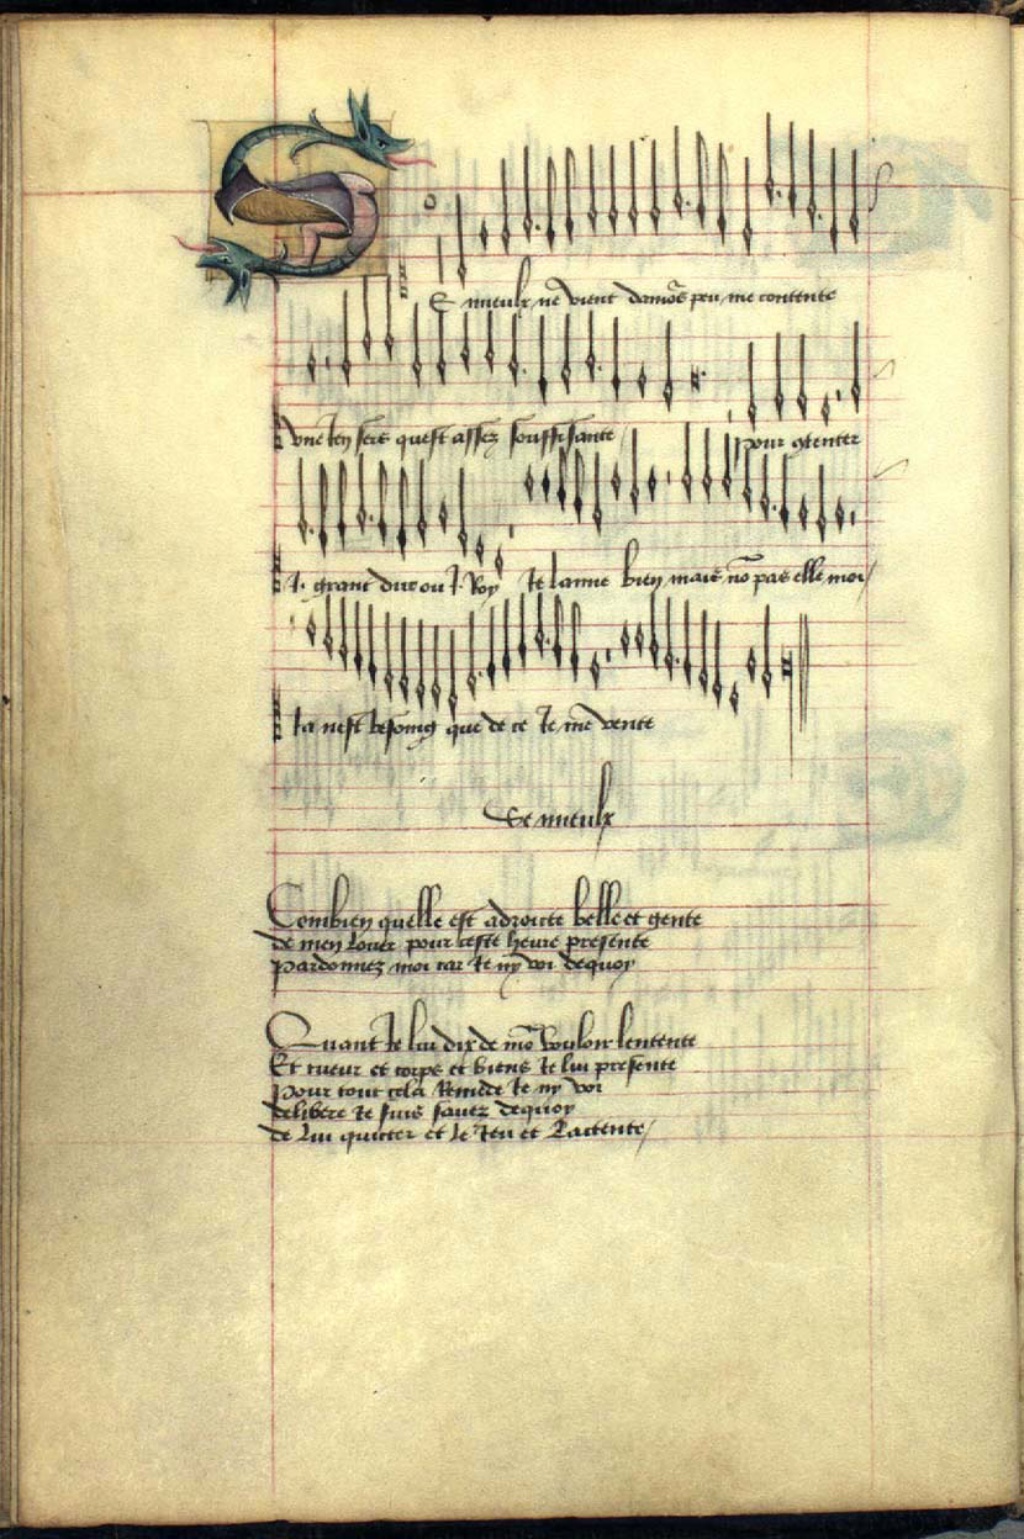 SE mieulx ne vient damo͞rs peu me contente
Vne ien sers quest assez souffisante pour gtenter
J. grant duc ou J. Roy Je laime bien mais no͞ pas elle moi/
Ja nest besoing que de ce Je me vente
Se mieulx
Combien quelle est adroicte belle et gente
de men louer pour ceste heure presente
pardonnez moi car Je ny voi dequoy
Quant Je lui dix de mo͞ vouloir lentente
Et cueur et corps et biens Je lui presente
Pour tout cela Remede Je ny voi
delibere Je suis savez dequoy
de lui quitter et le Jeu et Lactente/